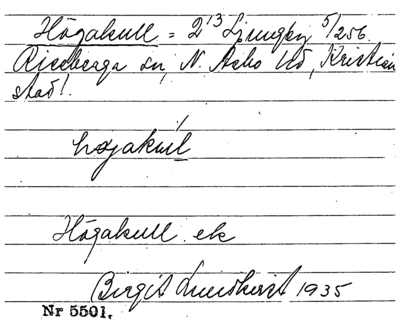 Högakull = 2¹³ Ljungby 5/256.
Riseberga sn, N. Åsbo hd, Kristian
stad l.
högakul
Högakull ek
Birgit Lundkvist 1935
Nr 5501.